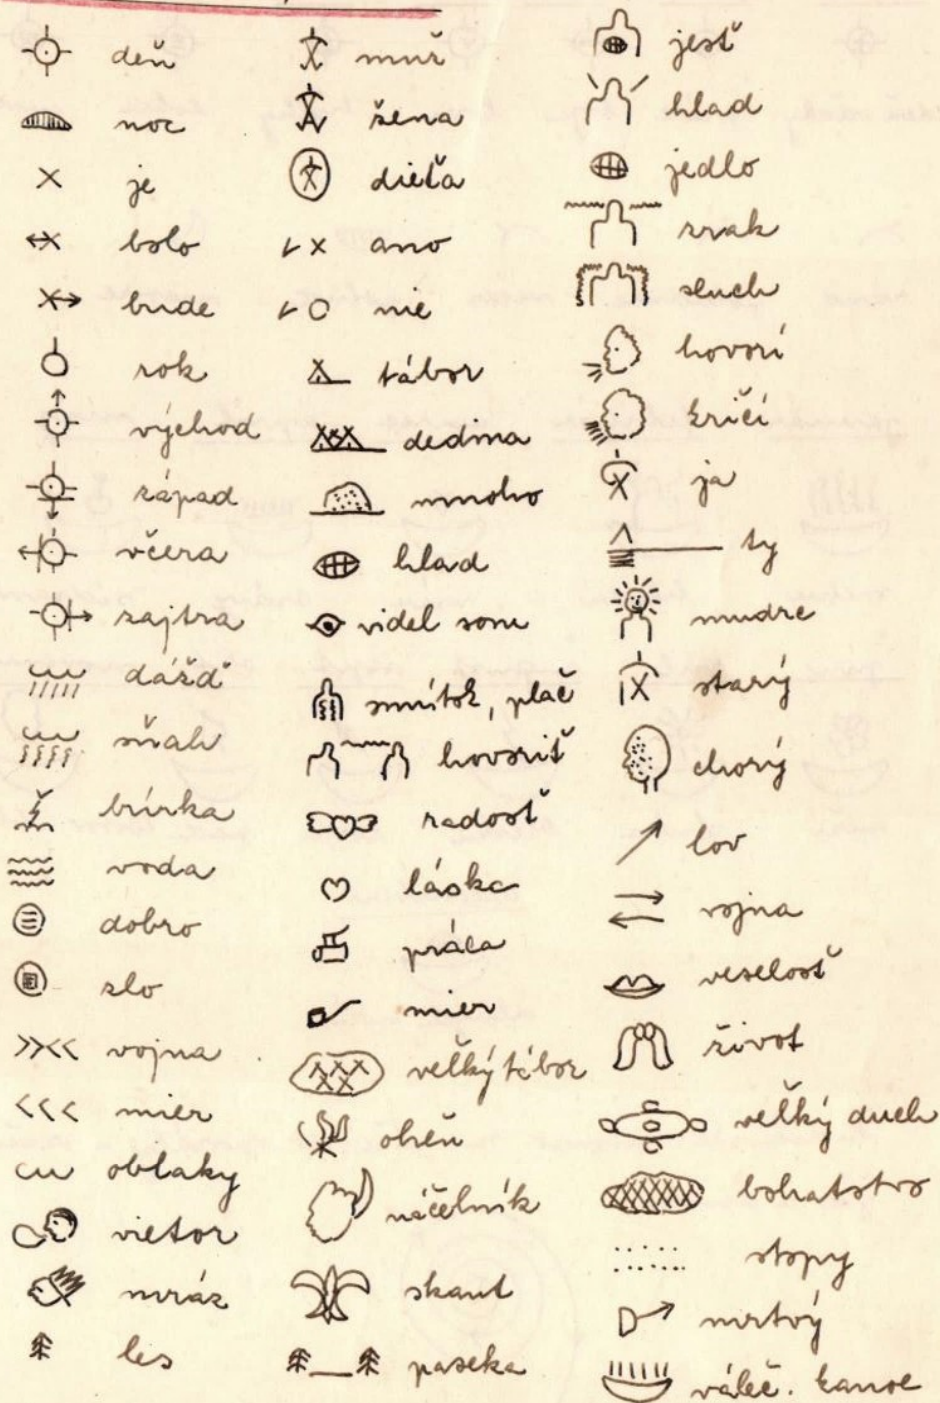 deň
noc
je
bolo
bude
rok
východ
západ
včera
zajtra
dážď
sňah
búrka
voda
dobro
zlo
vojna
mier
oblaky
vietor
mráz
les
muž
žena
dieťa
ano
nie
tábor
dedina
mnoho
hlad
videl som
smútok, plač
hovoriť
radosť
láska
práca
mier
veľký tábor
oheň
náčelník
skaut
paseka
jesť
hlad
jedlo
zrak
sluch
hovorí
kričí
ja
ty
mudre
starý
chorý
lov
vojna
veselosť
život
veľký duch
bohatstvo
stopy
mrtvý
váleč. kanoe